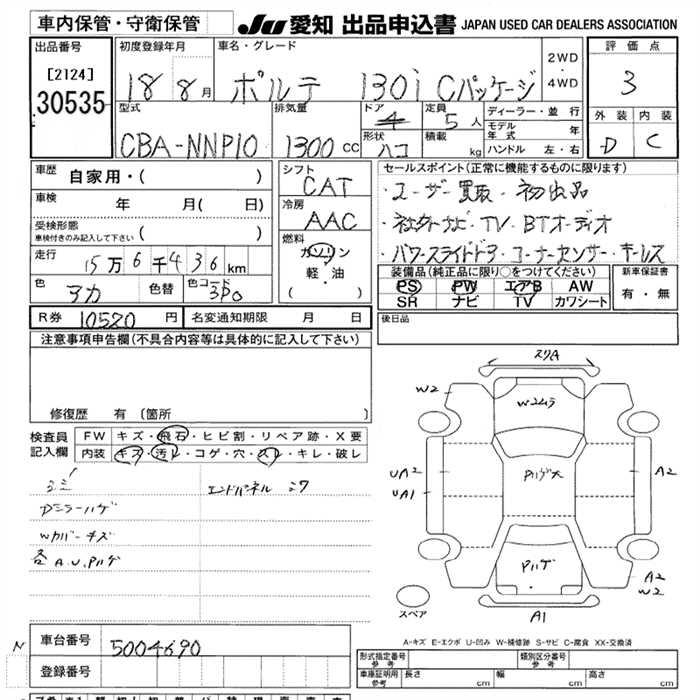 車内保管・守衛保管
JU 愛知 出品申込書 JAPAN USED CAR DEALERS ASSOCIATION
出品番号
[2124]
30535
初度登録年月
18 8月
車名・グレード
ポルテ 130i Cパッケージ
2WD
・
4WD
評価点
3
外装 内装
D C
型式
CBA-NNP10
排気量
1300 cc
ドア
4
形状
ハコ
定員
5人
積載
kg
ディーラー・並行
モデル年式 年
ハンドル 左・右
車歴 自家用・( )
車検 年 月( 日)
受検形態
車検付きのみ記入して下さい ( )
走行 15万6千436km
色 アカ 色替 色コード 3P0
シフト
CAT
冷房
AAC
燃料
ガソリン
軽・油
( )
セールスポイント(正常に機能するものに限ります)
・ユーザー買取・初出品
・社外ナビ・TV・BTオーディオ
・パワースライドドア・コーナーセンサー・キーレス
装備品(純正品に限り○をつけてください)
PS PW エアB AW
SR ナビ TV カワシート
新車保証書
有・無
R券 10520円 名変通知期限 月 日
後日品
注意事項申告欄(不具合内容等は具体的に記入して下さい)
修復歴 有(箇所 )
検査員記入欄
FW キズ・飛石・ヒビ割・リペア跡・X要
内装 キズ・汚レ・コゲ・穴・スレ・キレ・破レ
エンドパネル
Wカバーキズ
各A.U.Pハゲ
スリA
W2
W2ムラ
UA2
UA1
Pハゲ大
A2
Pハゲ
A2
W2
スペア
A1
A-キズ E-エクボ U-凹み W-補修跡 S-サビ C-腐食 XX-交換済
車台番号 5004690
登録番号
N
形式指定番号
参考
類別区分番号
参考
車庫証明用
参考
長さ cm 幅 cm 高さ cm